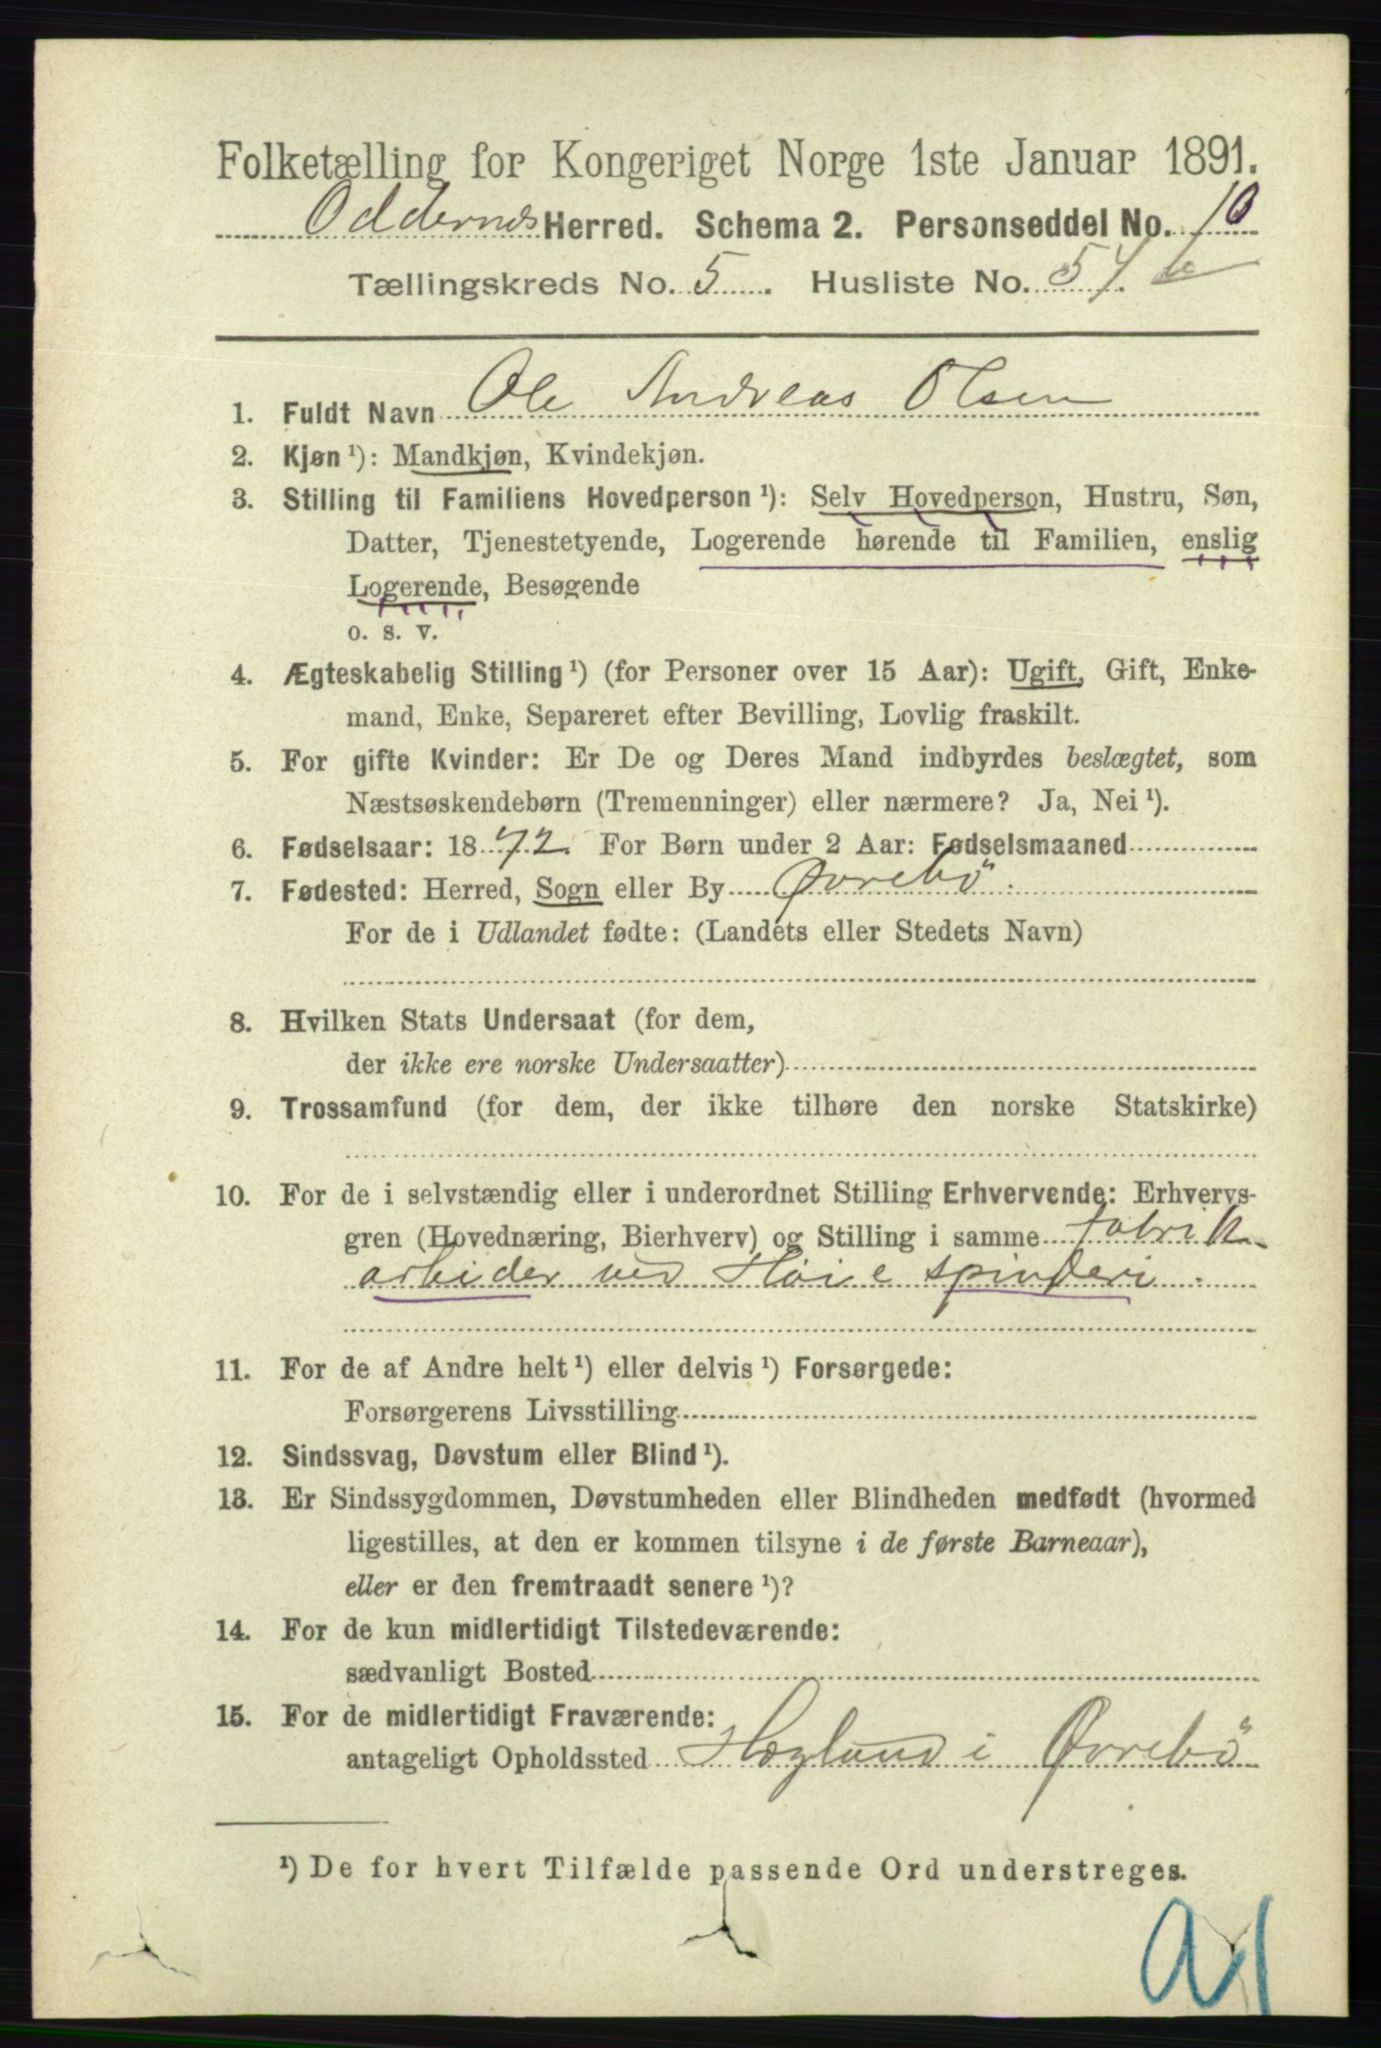 Folketælling for Kongeriget Norge 1ste Januar 1891.
Oddernes Herred. Schema 2. Personseddel No. 10
Tællingskreds No. 5. Husliste No. 54 b
1. Fuldt Navn Ole Andreas Olsen
2. Kjøn ¹): Mandkjøn, Kvindekjøn.
3. Stilling til Familiens Hovedperson ¹): Selv Hovedperson, Hustru, Søn,
Datter, Tjenestetyende, Logerende hørende til Familien, enslig
Logerende, Besøgende
o. s. v.
4. Ægteskabelig Stilling ¹) (for Personer over 15 Aar): Ugift, Gift, Enke-
mand, Enke, Separeret efter Bevilling, Lovlig fraskilt.
5. For gifte Kvinder: Er De og Deres Mand indbyrdes beslægtet, som
Næstsøskendebørn (Tremenninger) eller nærmere? Ja, Nei ¹).
6. Fødselsaar: 1872. For Børn under 2 Aar: Fødselsmaaned
7. Fødested: Herred, Sogn eller By Øvrebö.
For de i Udlandet fødte: (Landets eller Stedets Navn)
8. Hvilken Stats Undersaat (for dem,
der ikke ere norske Undersaatter)
9. Trossamfund (for dem, der ikke tilhøre den norske Statskirke)
10. For de i selvstændig eller i underordnet Stilling Erhvervende: Erhvervs-
gren (Hovednæring, Bierhverv) og Stilling i samme fabrik-
arbeider ved Höie spinderi.
11. For de af Andre helt ¹) eller delvis ¹) Forsørgede:
Forsørgerens Livsstilling
12. Sindssvag, Døvstum eller Blind ¹).
13. Er Sindssygdommen, Døvstumheden eller Blindheden medfødt (hvormed
ligestilles, at den er kommen tilsyne i de første Barneaar),
eller er den fremtraadt senere ¹)?
14. For de kun midlertidigt Tilstedeværende:
sædvanligt Bosted
15. For de midlertidigt Fraværende:
antageligt Opholdssted Høglund i Øvrebö
¹) De for hvert Tilfælde passende Ord understreges.